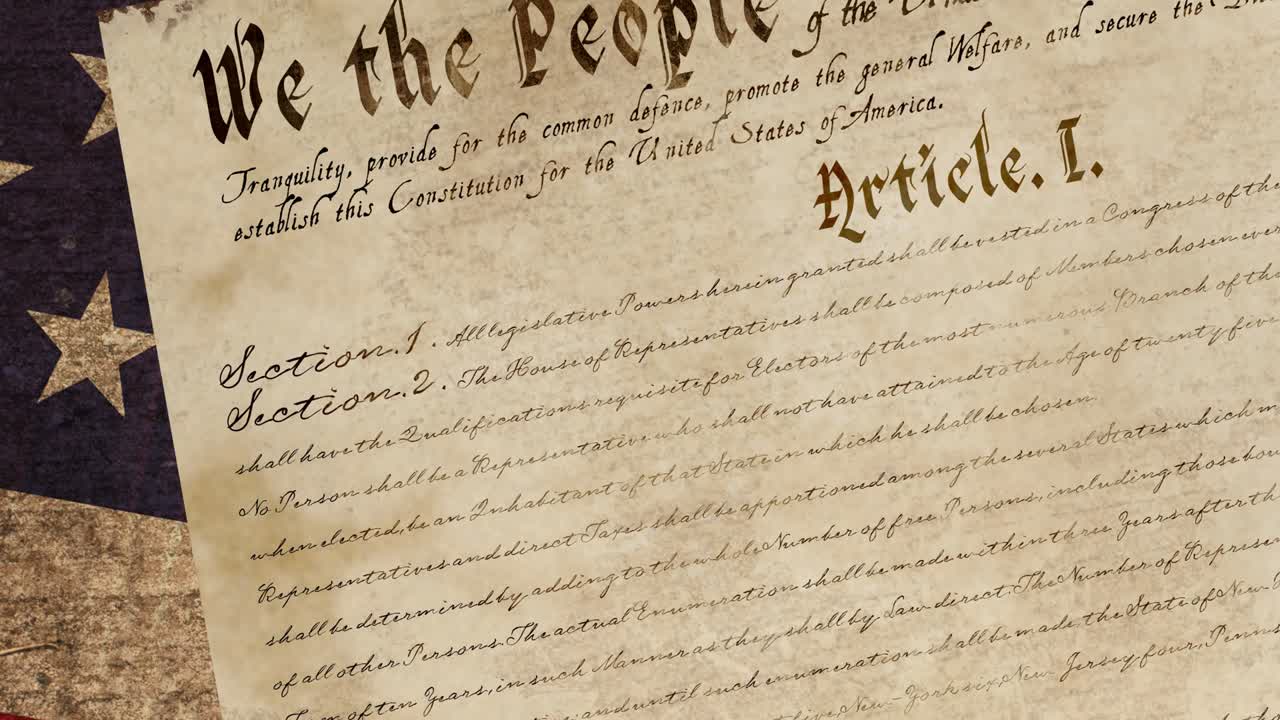 We the People of the
Tranquility, provide for the common defence, promote the general Welfare, and secure the
establish this Constitution for the United States of America.
Article. I.
Section. 1. All legislative Powers herein granted shall be vested in a Congress of the
Section. 2. The House of Representatives shall be composed of Members chosen ever
shall have the Qualifications requisite for Electors of the most numerous Branch of the
No Person shall be a Representative who shall not have attained to the Age of twenty five
when elected, be an Inhabitant of that State in which he shall be chosen.
Representatives and direct Taxes shall be apportioned among the several States which m
shall be determined by adding to the whole Number of free Persons, including those bou
of all other Persons. The actual Enumeration shall be made within three Years after th
of ten Years, in such Manner as they shall by Law direct. The Number of Represen
and until such enumeration shall be made, the State of New
New-York six, New-Jersey four, Penns